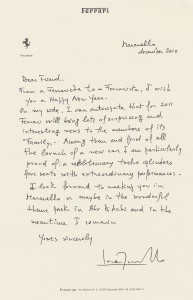 Ferrari
Maranello
december 2010
Dear Friend,
From a Ferrarista to a Ferrarista, I wish
you a Happy New Year.
On my side, I can anticipate that for 2011
Ferrari will bring lots of surprising and
interesting news to the members of its
"Family". Among them and first of all
the launch of a new car I am particularly
proud of: a revolutionary twelve cylinders
four seats with extraordinary performances.
I look forward to meeting you in
Maranello or maybe in the wonderful
theme park in Abu Dhabi and in the
meantime I remain
Yours sincerely